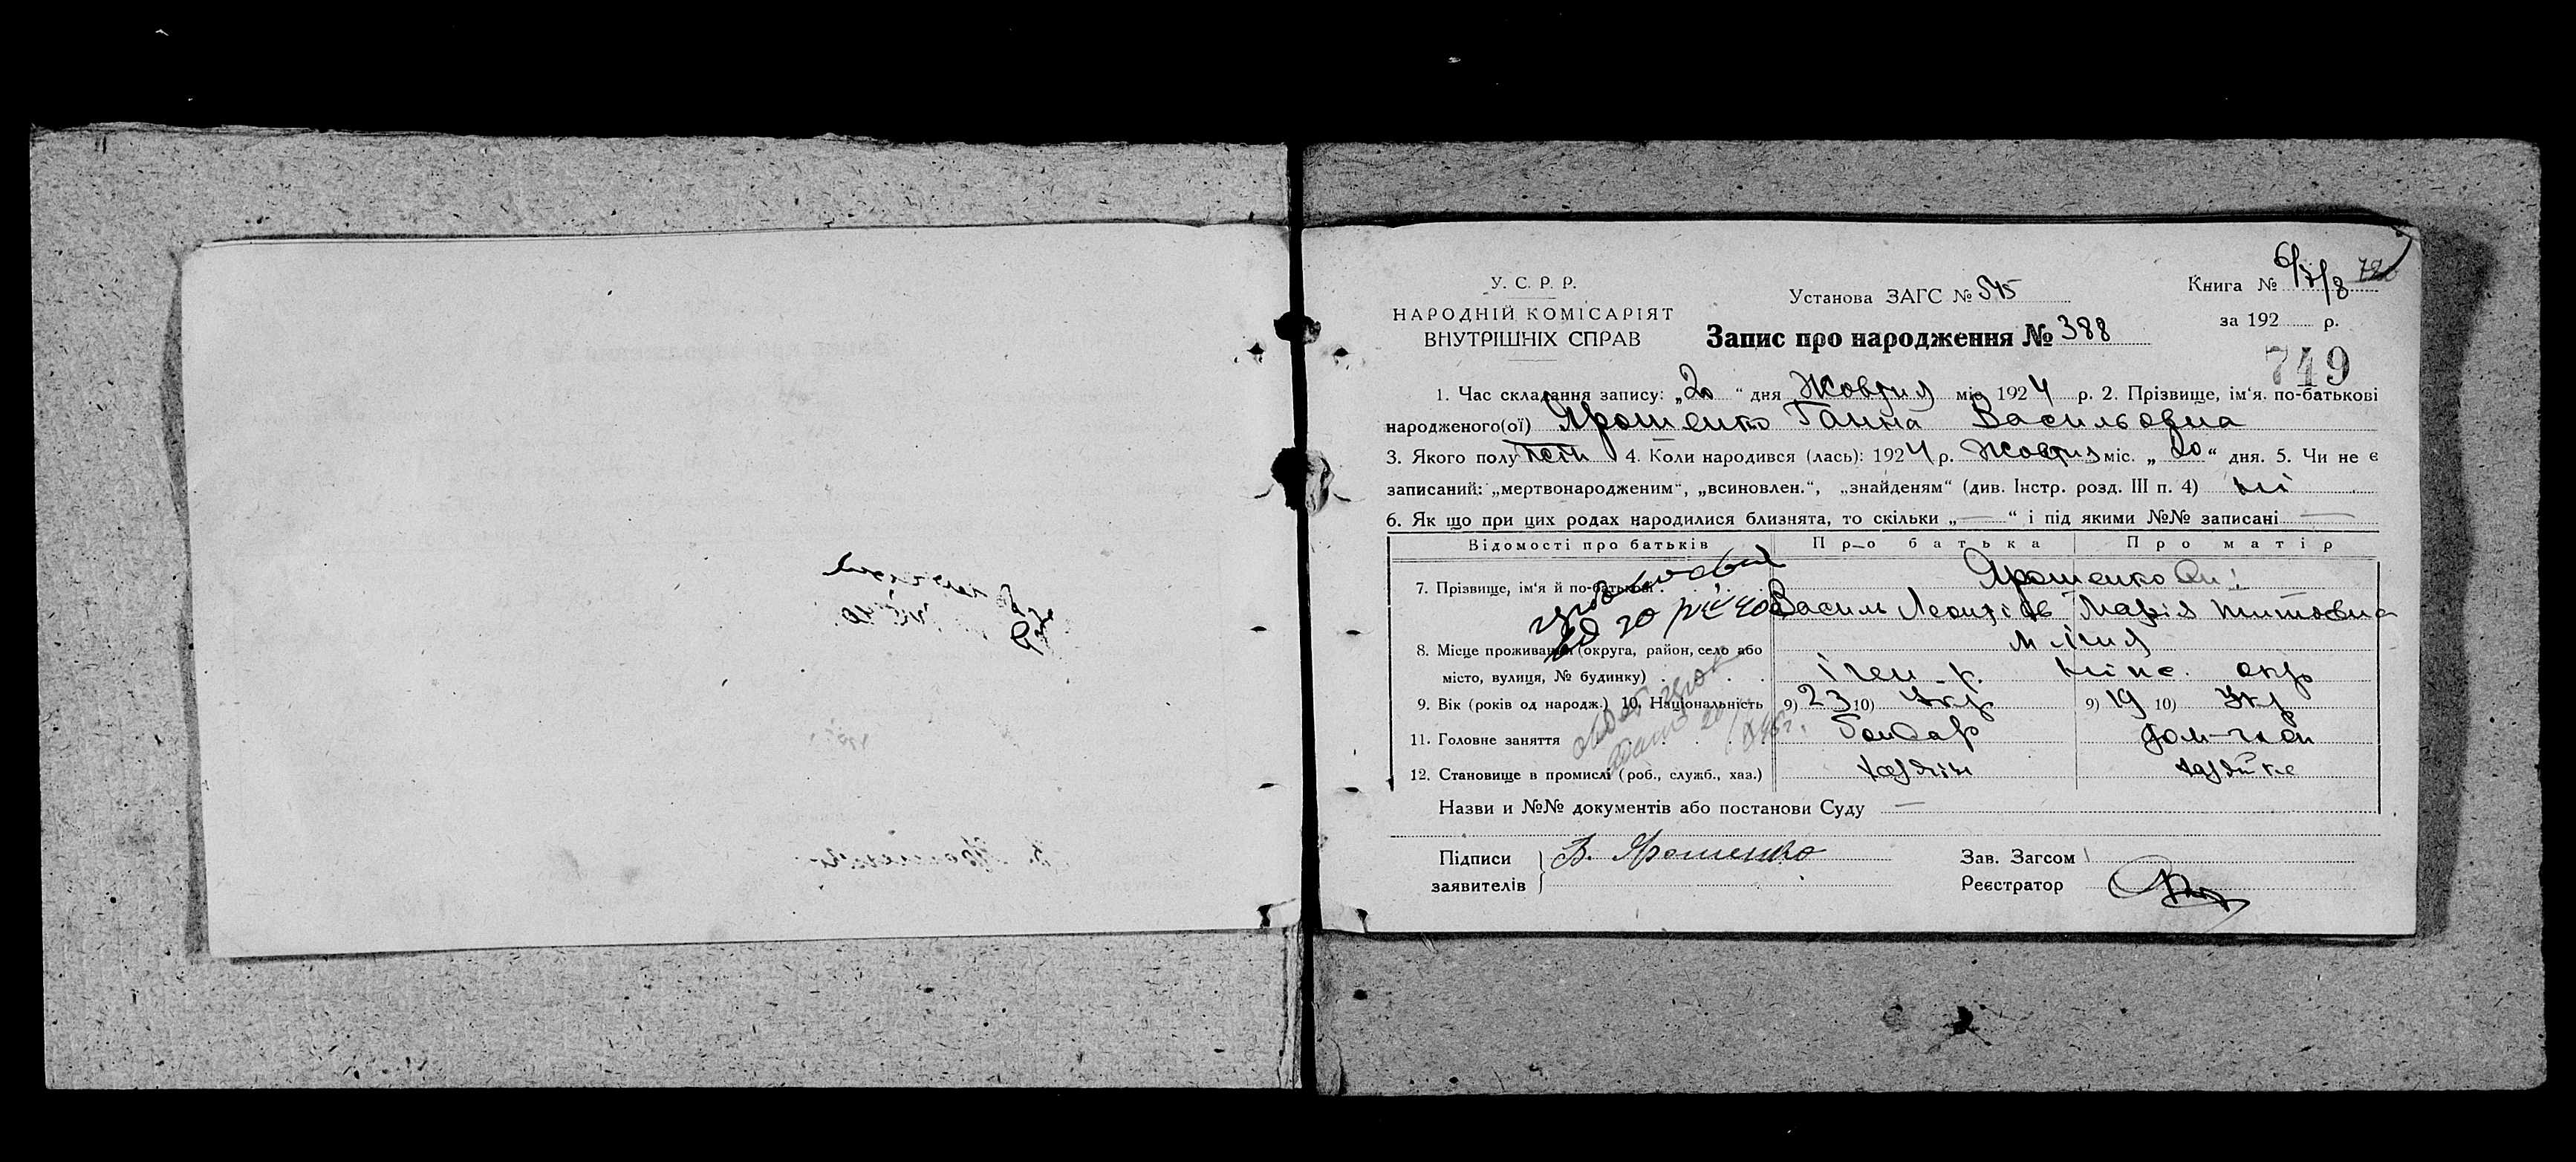 У. С. Р. Р.
НАРОДНІЙ КОМІСАРІЯТ
ВНУТРІШНІХ СПРАВ
Установа ЗАГС № 545
Книга № 6/7/8
за 192 р.
Запис про народження № 388
749
1. Час складання запису: „20“ дня Жовтня міс. 1924 р. 2. Прізвище, ім‘я. по-батькові
народженого(ої) Ярошенко Ганна Васильовна
3. Якого полу жін 4. Коли народився (лась): 1924 р. Жовтня міс. „20“ дня. 5. Чи не є
записаний: „мертвонародженим“, „всиновлен.“, „знайденям“ (див. Інстр. розд. III п. 4) ні
6. Як що при цих родах народилися близнята, то скільки „—“ і під якими №№ записані —
Відомості про батьків Про батька Про матір
7. Прізвище, ім‘я й по-батькові Ярошенко
Василь Леонтіїв Марія Титовна
8. Місце проживання (округа, район, село або м Ічня
місто, вулиця, № будинку) Ічен. р. Ніже. окр
9. Вік (років од народж.) 10. Національність 9) 23 10) Укр 9) 19 10) Укр
11. Головне заняття Бондар
12. Становище в промислі (роб., служб., хаз.) хазяїн хазяйка
Назви и №№ документів або постанови Суду —
Підписи
заявителів
В. Ярошенко
Зав. Загсом
Реєстратор